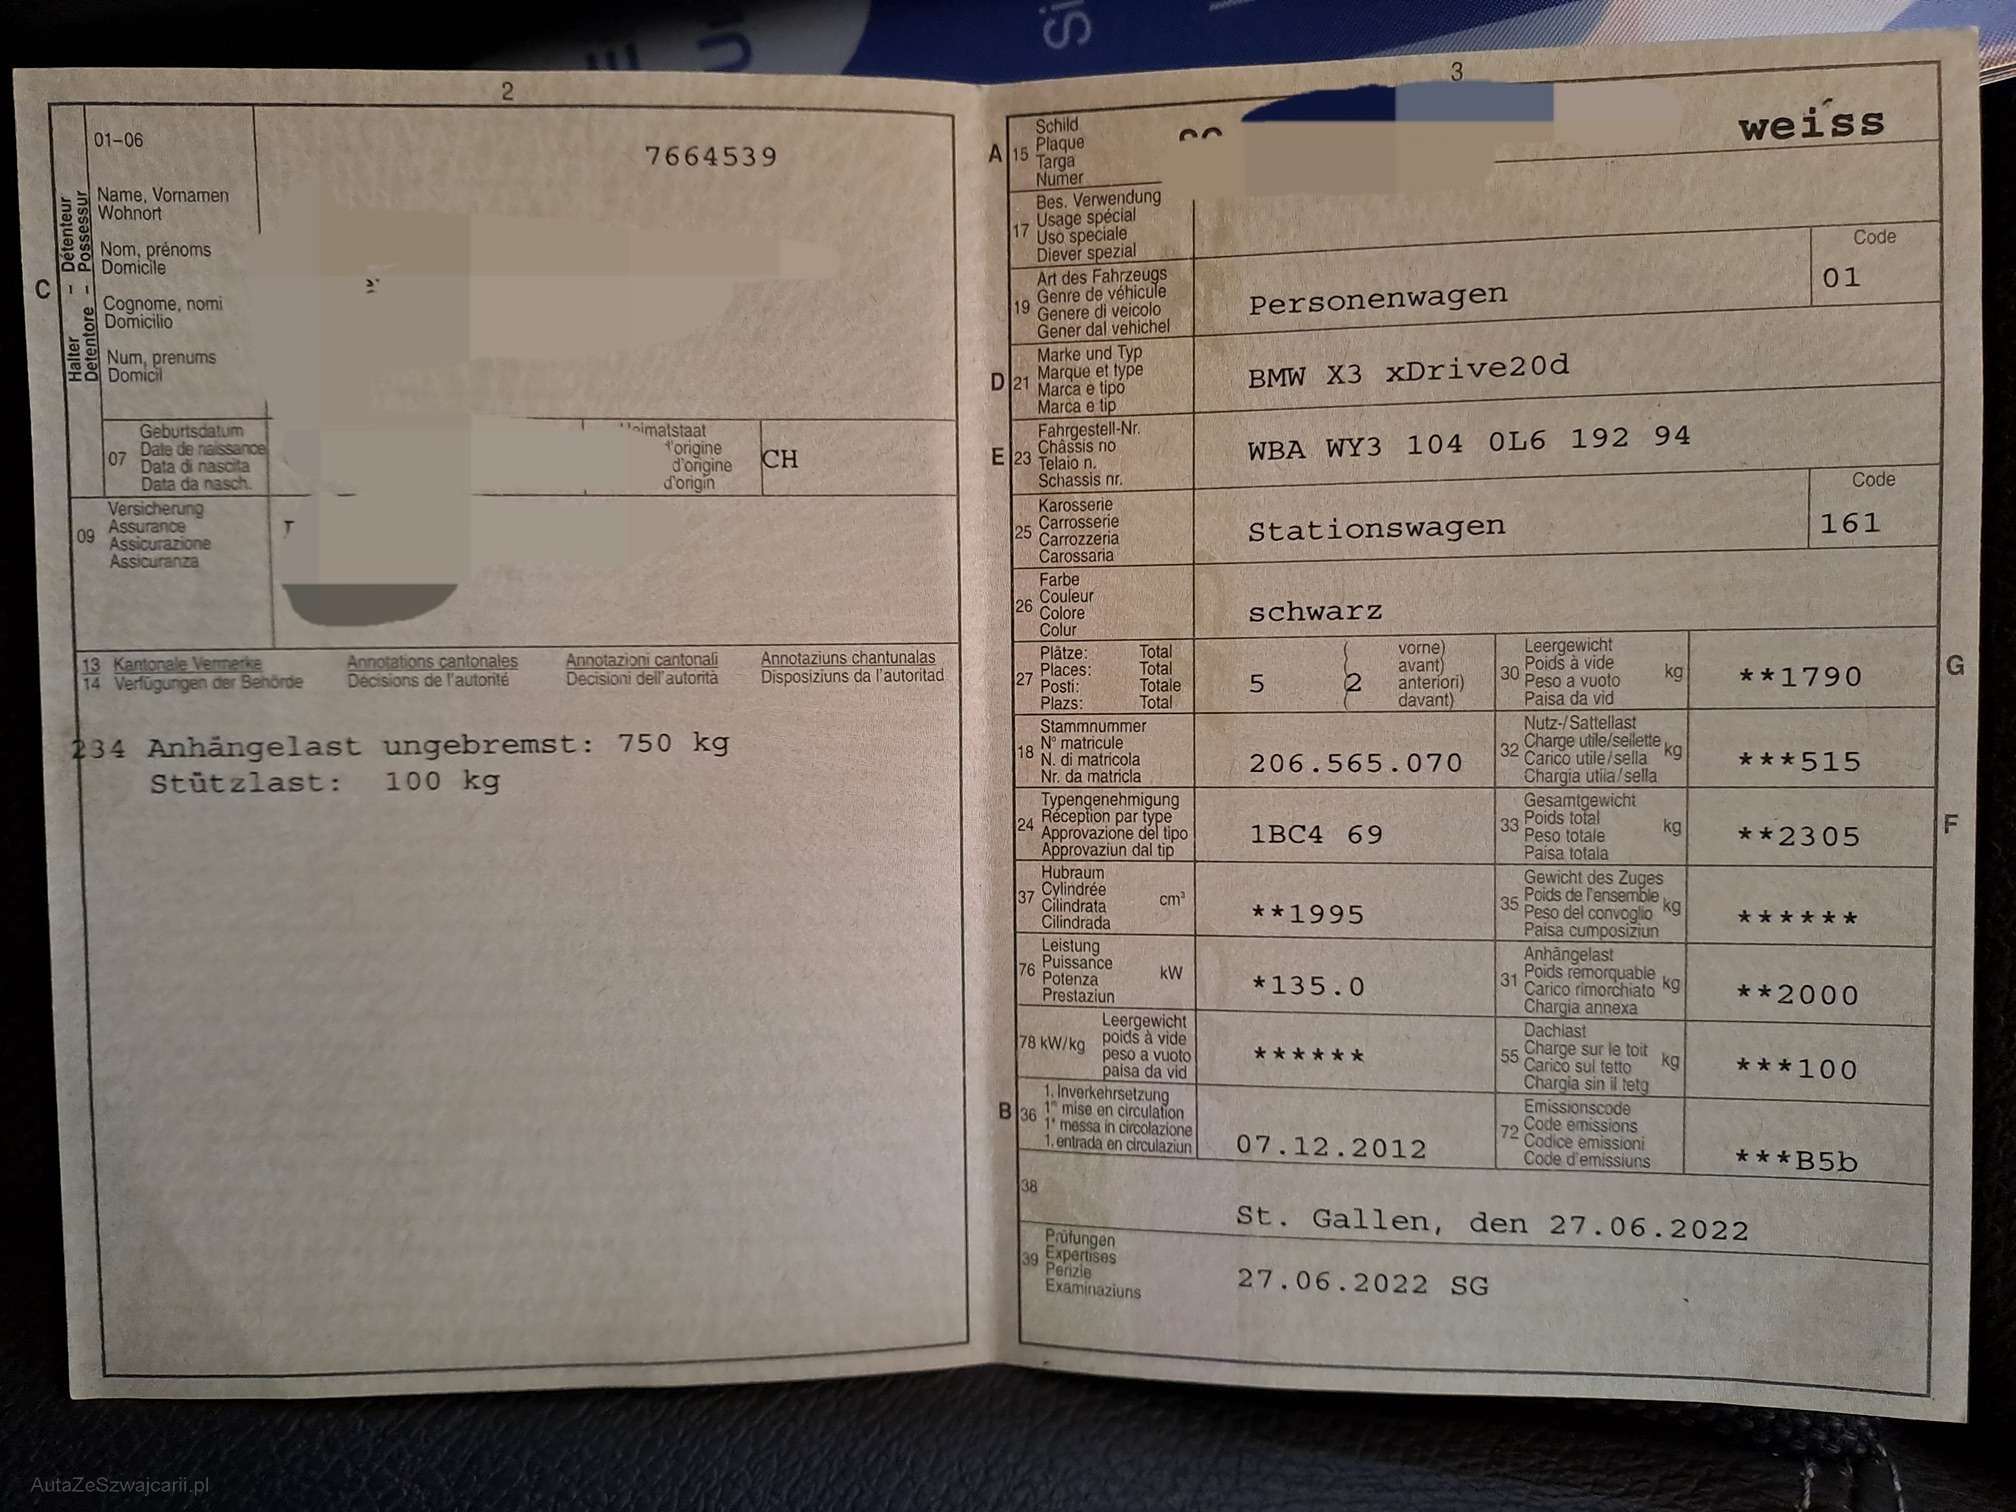 Si
2
01–06
7664539
Name, Vornamen
Wohnort
Nom, prénoms
Domicile
Cognome, nomi
Domicilio
Num, prenums
Domicil
C
Halter – Détenteur
Detentore – Possessur
07
Geburtsdatum
Date de naissance
Data di nascita
Data da nasch.
d'origine
d'origin
CH
09
Versicherung
Assurance
Assicurazione
Assicuranza
13 Kantonale Vermerke Annotations cantonales Annotazioni cantonali Annotaziuns chantunalas
14 Verfügungen der Behörde Décisions de l'autorité Decisioni dell'autorità Disposiziuns da l'autoritad
234 Anhängelast ungebremst: 750 kg
Stützlast: 100 kg
3
A 15
Schild
Plaque
Targa
Numer
weiss
17
Bes. Verwendung
Usage spécial
Uso speciale
Diever spezial
19
Art des Fahrzeugs
Genre de véhicule
Genere di veicolo
Gener dal vehichel
Personenwagen
Code
01
D 21
Marke und Typ
Marque et type
Marca e tipo
Marca e tip
BMW X3 xDrive20d
E 23
Fahrgestell-Nr.
Châssis no
Telaio n.
Schassis nr.
WBA WY3 104 0L6 192 94
25
Karosserie
Carrosserie
Carrozzeria
Carossaria
Stationswagen
Code
161
26
Farbe
Couleur
Colore
Colur
schwarz
27
Plätze: Total
Places: Total
Posti: Totale
Plazs: Total
5 ( 2
vorne)
avant)
anteriori)
davant)
30
Leergewicht
Poids à vide
Peso a vuoto
Paisa da vid
kg
**1790
G
18
Stammnummer
N° matricule
N. di matricola
Nr. da matricla
206.565.070
32
Nutz-/Sattellast
Charge utile/sellette
Carico utile/sella
Chargia utila/sella
kg
***515
24
Typengenehmigung
Réception par type
Approvazione del tipo
Approvaziun dal tip
1BC4 69
33
Gesamtgewicht
Poids total
Peso totale
Paisa totala
kg
**2305
F
37
Hubraum
Cylindrée
Cilindrata
Cilindrada
cm³
**1995
35
Gewicht des Zuges
Poids de l'ensemble
Peso del convoglio
Paisa cumposiziun
kg
******
76
Leistung
Puissance
Potenza
Prestaziun
kW
*135.0
31
Anhängelast
Poids remorquable
Carico rimorchiato
Chargia annexa
kg
**2000
78 kW/kg
Leergewicht
poids à vide
peso a vuoto
paisa da vid
******
55
Dachlast
Charge sur le toit
Carico sul tetto
Chargia sin il tetg
kg
***100
B 36
1. Inverkehrsetzung
1re mise en circulation
1a messa in circolazione
1. entrada en circulaziun
07.12.2012
72
Emissionscode
Code émissions
Codice emissioni
Code d'emissiuns
***B5b
38
St. Gallen, den 27.06.2022
39
Prüfungen
Expertises
Perizie
Examinaziuns
27.06.2022 SG
AutaZeSzwajcarii.pl